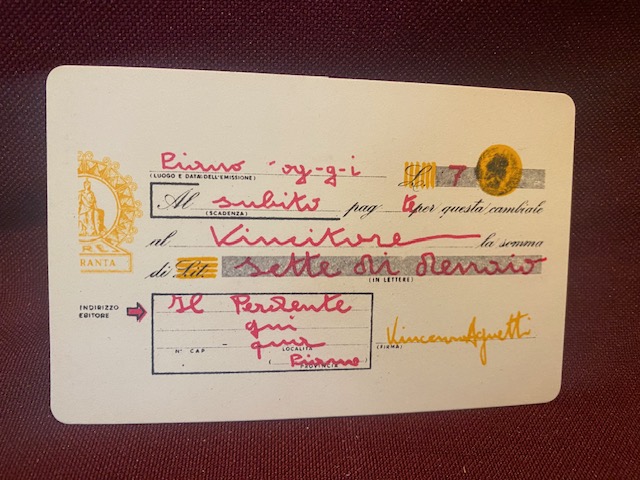 Primo og-g-i L. 7
(LUOGO E DATA DELL'EMISSIONE)
Al subito pag te per questa cambiale
(SCADENZA)
al Vincitore la somma
RE
RANTA
di Lit. sette di denaio
(IN LETTERE)
INDIRIZZO
EDITORE
Il Perdente
qui
qua
N° CAP LOCALITÀ
Primo
( PROVINCIA )
Vincenzo Agnetti
(FIRMA)